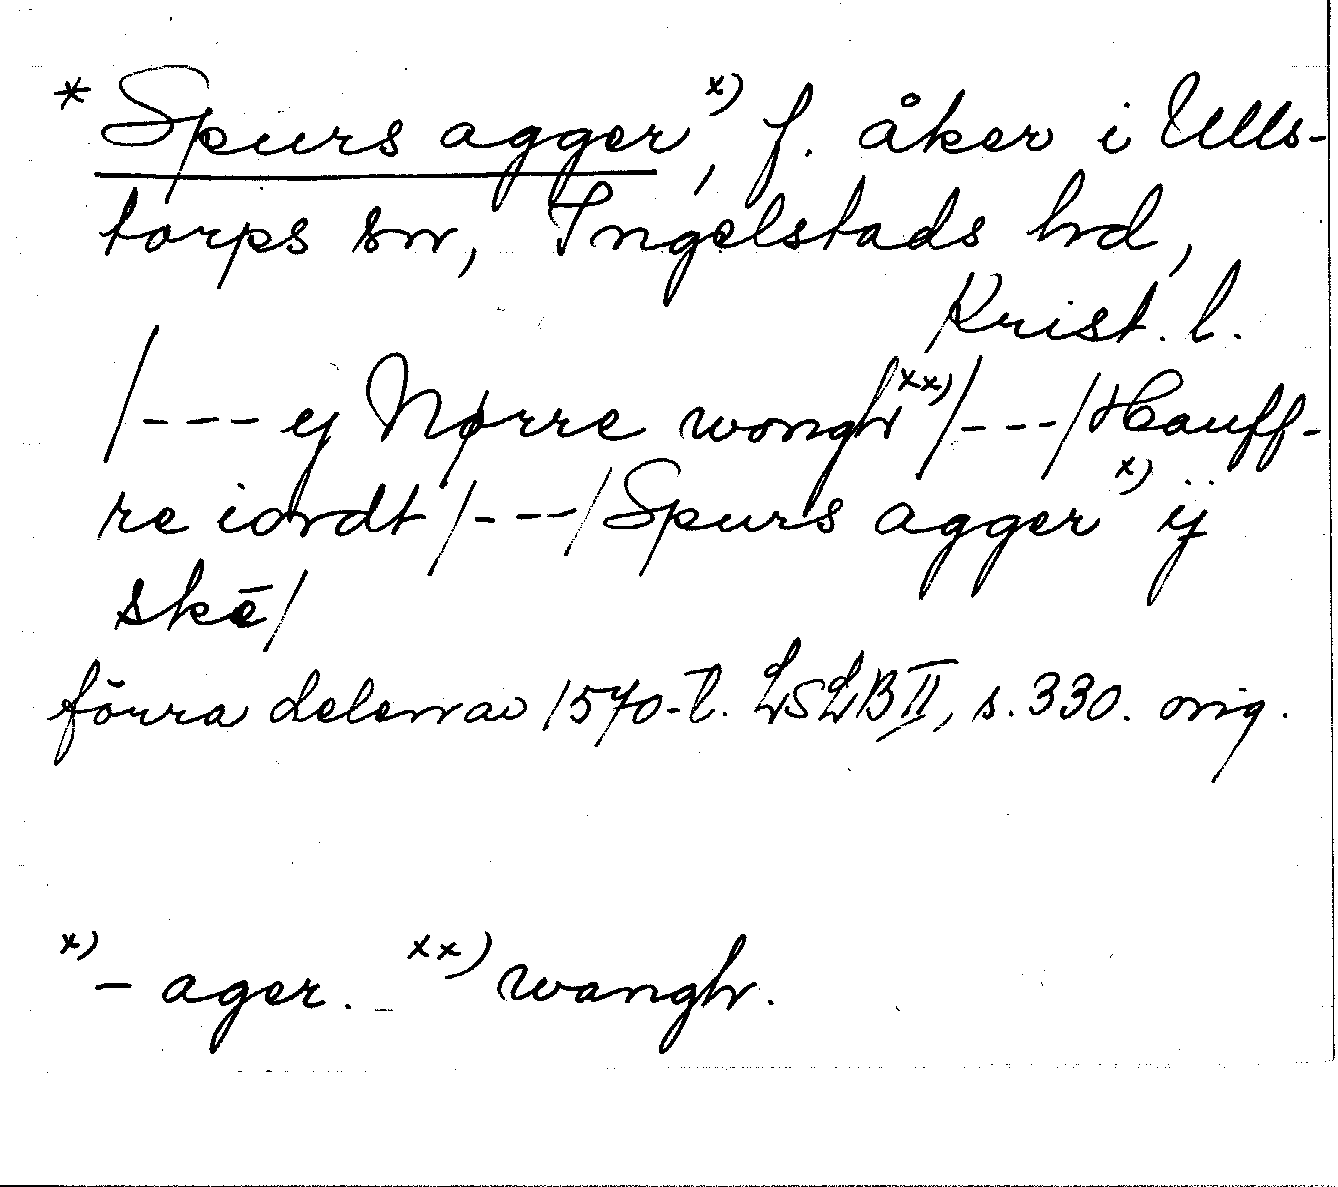 * Spurs agger x), f. åker i Ulls-
torps sn, Ingelstads hd,
Krist. l.
/--- ej Nørre wongh xx) /---/ Hauff-
re iordt /---/ Spurs agger x) ÿ
skē/
förra delen av 1570-t. LSLB II, s. 330. orig.
x) - ager. xx) wangh.